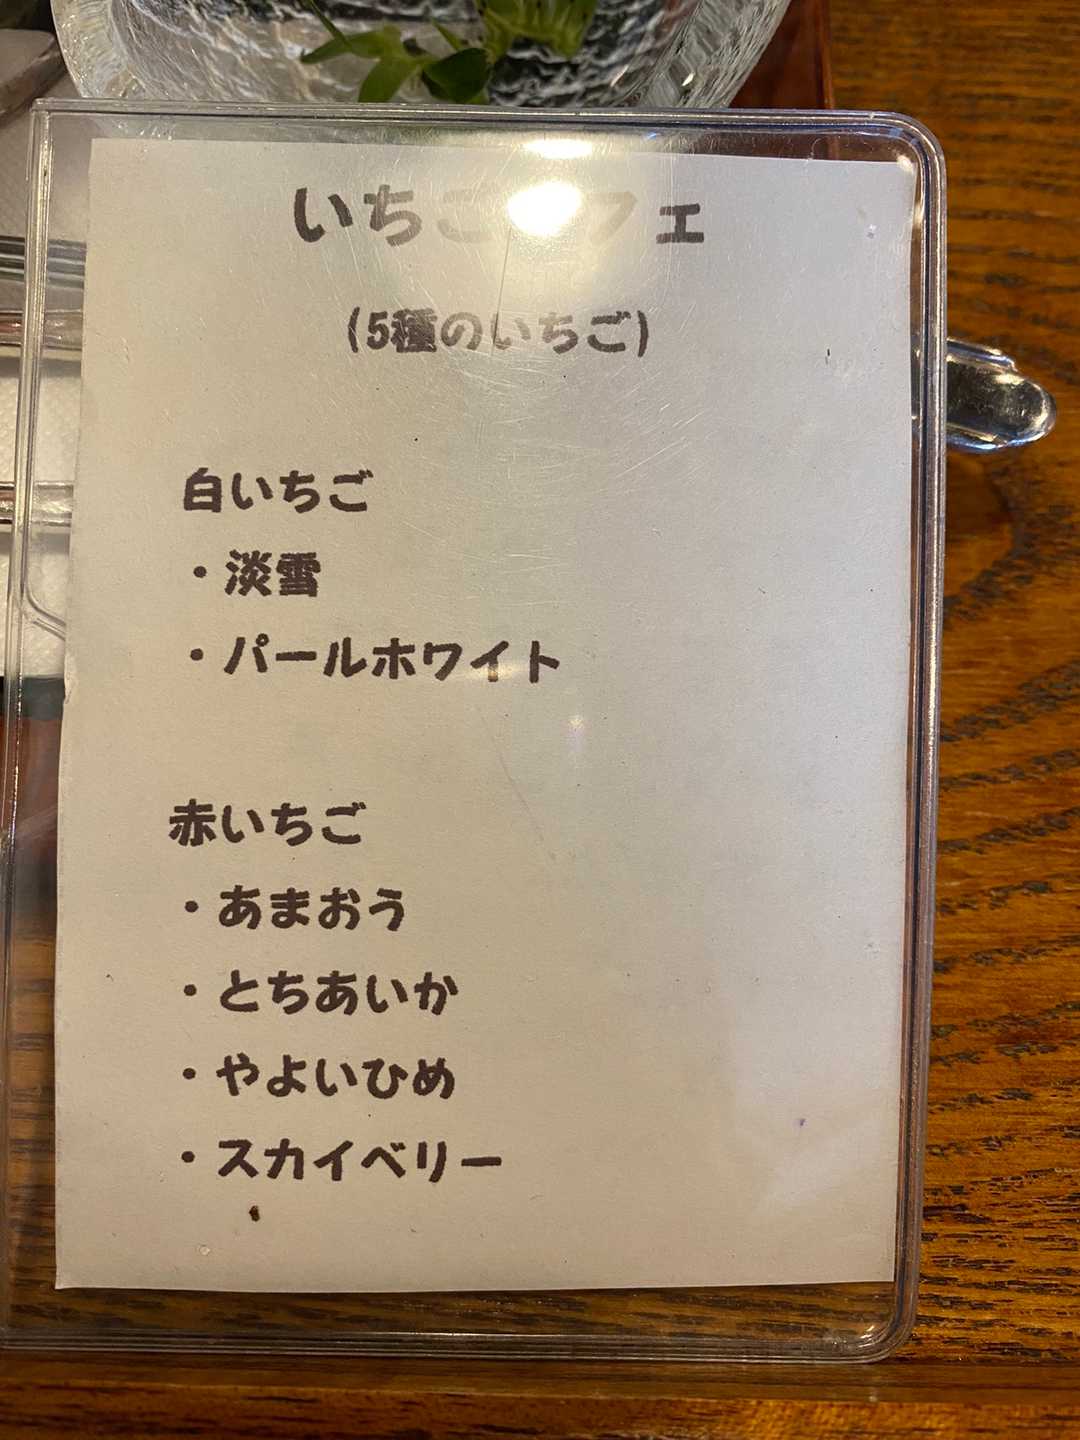 いちご フェ
(5種のいちご)
白いちご
・淡雪
・パールホワイト
赤いちご
・あまおう
・とちあいか
・やよいひめ
・スカイベリー